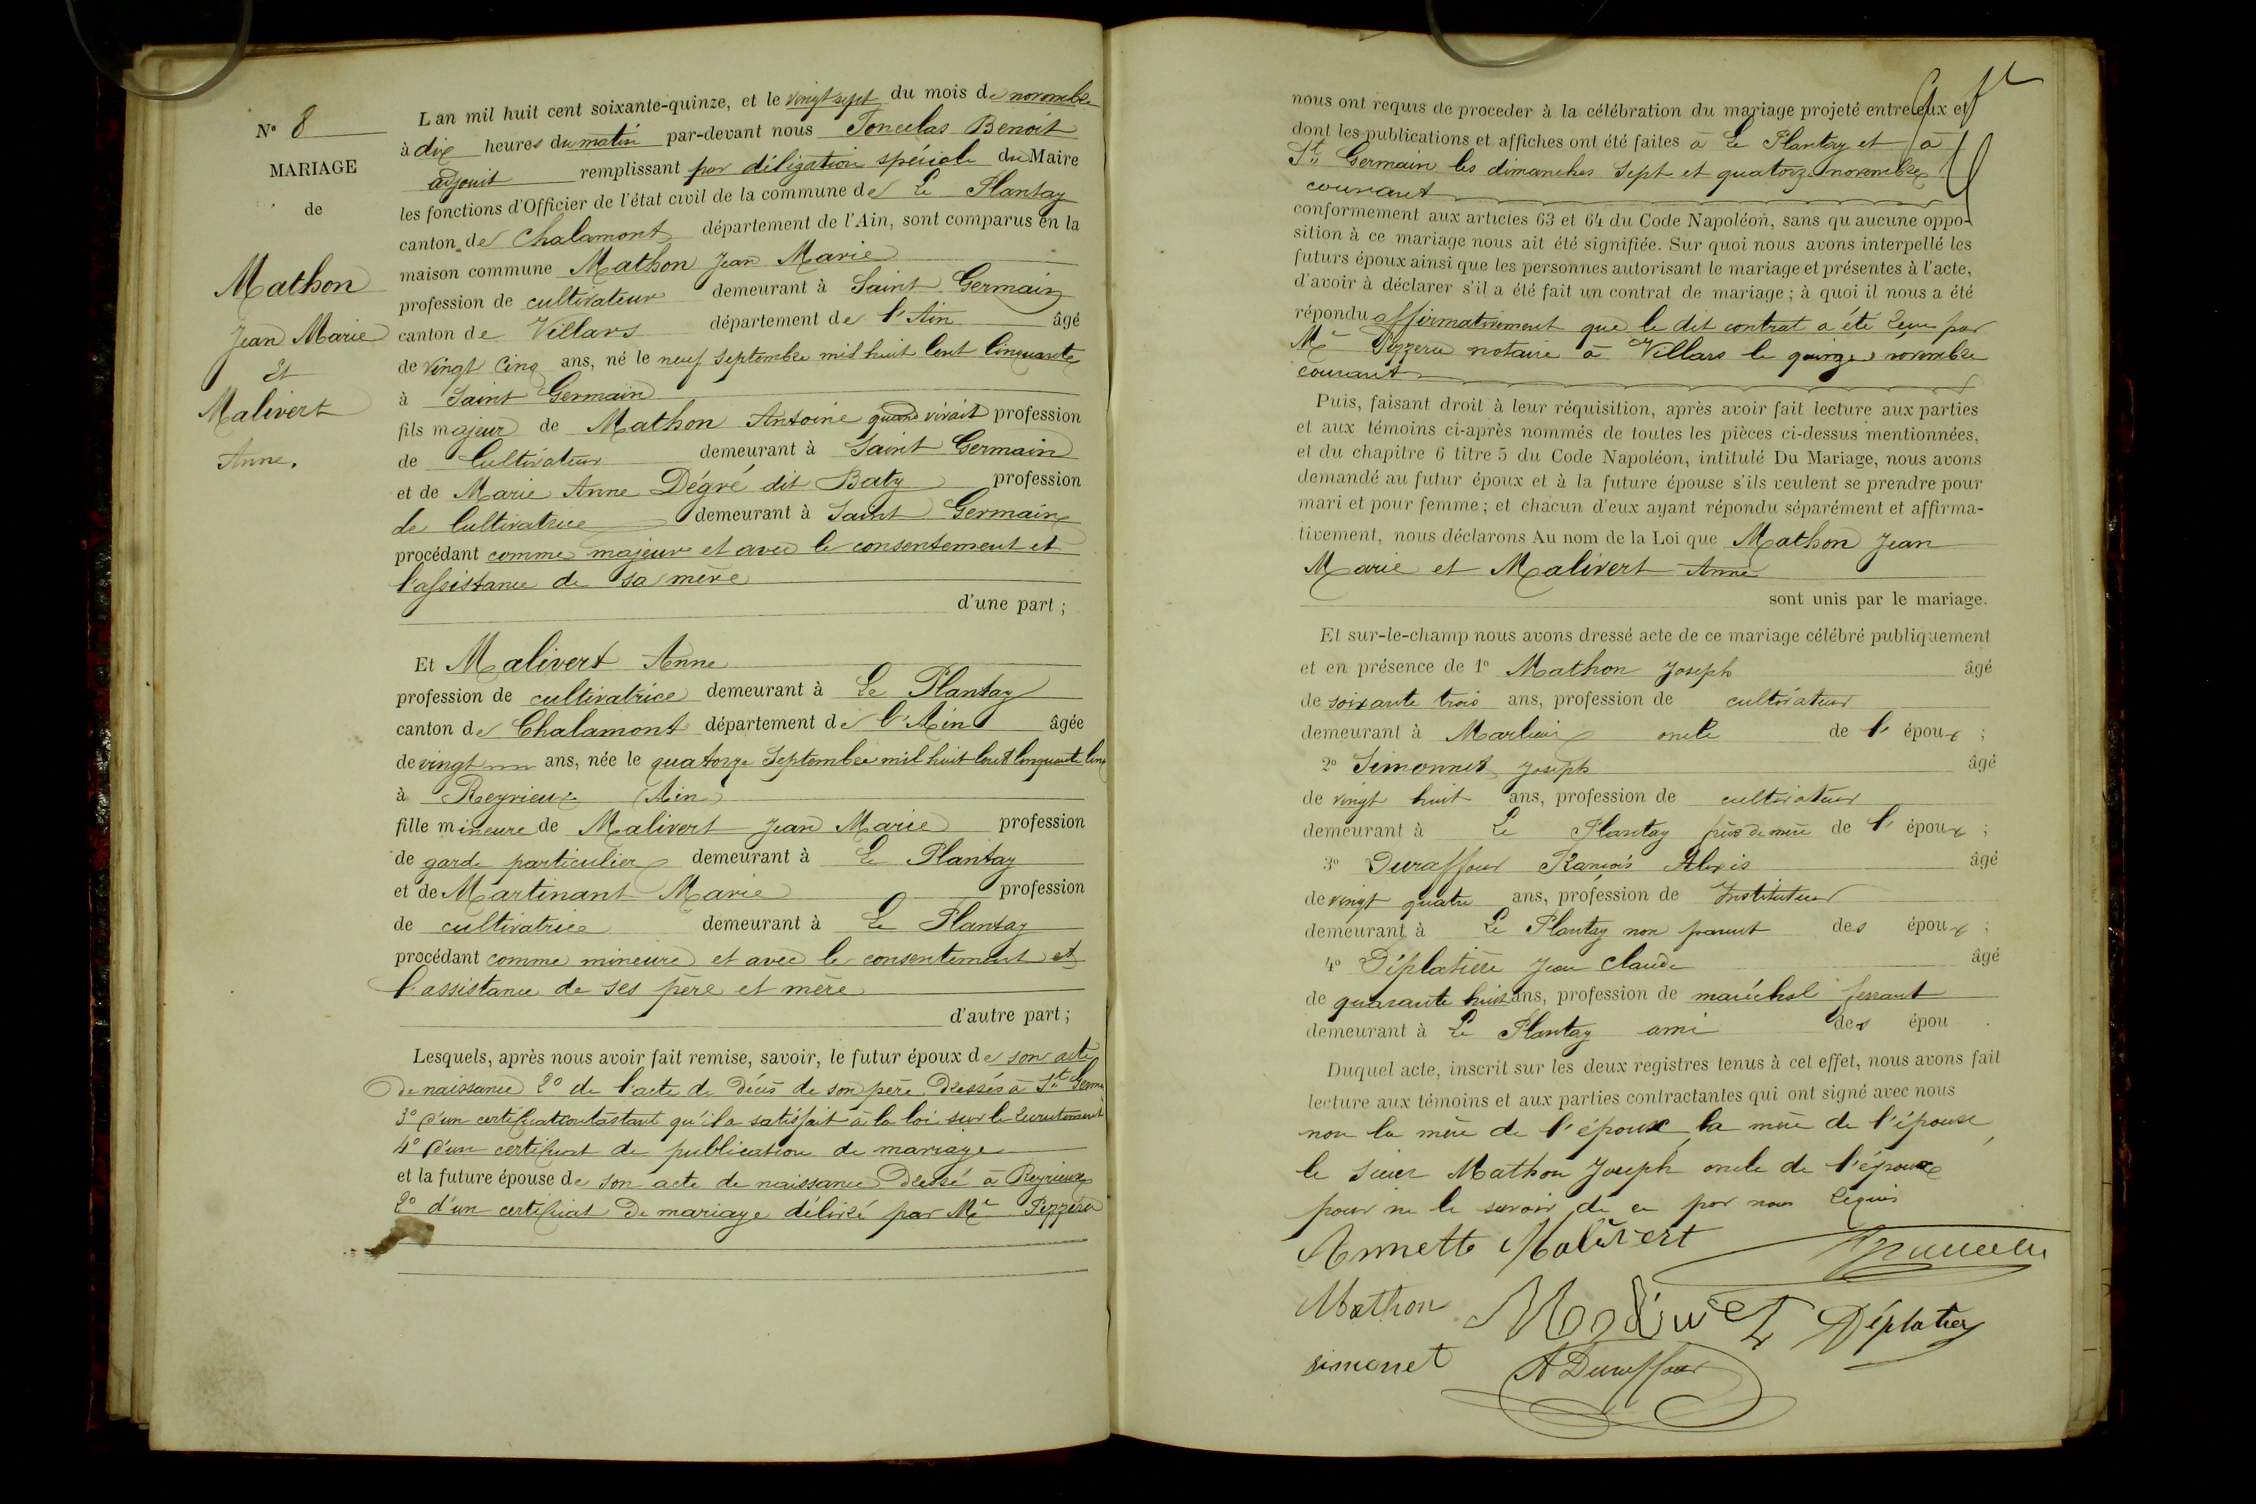 N° 8
MARIAGE
de
Mathon
Jean Marie
Et
Malivert
Anne.
L'an mil huit cent soixante-quinze, et le vingt sept du mois de novembre
à dix heures du matin par-devant nous Benoit
adjoint remplissant par déligation spéciale du Maire
les fonctions d'Officier de l'état civil de la commune de Le Plantay
canton de Chalamont département de l'Ain, sont comparus en la
maison commune Mathon Jean Marie
profession de cultivateur demeurant à Saint Germain
canton de Villars département de l'Ain âgé
de vingt cinq ans, né le neuf septembre mil huit cent cinquante
à Saint Germain
fils majeur de Mathon Antoine quand vivait profession
de Cultivateur demeurant à Saint Germain
et de Marie Anne Dégré dit Baty profession
de Cultivatrice demeurant à Saint Germain
procédant comme majeur et avec le consentement et
l'assistance de sa mère
d'une part ;
Et Malivert Anne
profession de cultivatrice demeurant à Le Plantay
canton de Chalamont département de l'Ain âgée
de vingt ans, née le quatorze Septembre mil huit cent cinquante cinq
à Reyrieux (Ain)
fille mineure de Malivert Jean Marie profession
de garde particulier demeurant à Le Plantay
et de Martinant Marie profession
de cultivatrice demeurant à Le Plantay
procédant comme mineure et avec le consentement et
l'assistance de ses père et mère
d'autre part ;
Lesquels, après nous avoir fait remise, savoir, le futur époux de son acte
de naissance 2° de l'acte de décès de son père dressés à St Germain
3° d'un certificat contastant qu'il a satisfait à la loi sur le recrutement
4° d'un certificat de publication de mariage
et la future épouse de son acte de naissance dressé à Reyrieux
2° d'un certificat de mariage délivré par Me
nous ont requis de proceder à la célébration du mariage projeté entre eux et
dont les publications et affiches ont été faites à Le Plantay et à
St Germain les dimanches sept et quatorze novembre
courant
conformement aux articles 63 et 64 du Code Napoléon, sans qu'aucune oppo-
sition à ce mariage nous ait été signifiée. Sur quoi nous avons interpellé les
futurs époux ainsi que les personnes autorisant le mariage et présentes à l'acte,
d'avoir à déclarer s'il a été fait un contrat de mariage ; à quoi il nous a été
répondu affirmativement que le dit contrat a été reçu par
Me notaire à Villars le quinze novembre
courant
Puis, faisant droit à leur réquisition, après avoir fait lecture aux parties
et aux témoins ci-après nommés de toutes les pièces ci-dessus mentionnées,
et du chapitre 6 titre 5 du Code Napoléon, intitulé Du Mariage, nous avons
demandé au futur époux et à la future épouse s'ils veulent se prendre pour
mari et pour femme ; et chacun d'eux ayant répondu séparément et affirma-
tivement, nous déclarons Au nom de la Loi que Mathon Jean
Marie et Malivert Anne
sont unis par le mariage.
Et sur-le-champ nous avons dressé acte de ce mariage célébré publiquement
et en présence de 1° Mathon Joseph âgé
de soixante trois ans, profession de cultivateur
demeurant à Marlieux oncle de l' époux ;
2° Simonnet Joseph âgé
de vingt huit ans, profession de cultivateur
demeurant à Le Plantay frère de mère de l' époux ;
3° Duraffour François Alexis âgé
de vingt quatre ans, profession de Instituteur
demeurant à Le Plantay non parent des époux ;
4° Déplatière Jean Claude âgé
de quarante huit ans, profession de maréchal ferrant
demeurant à Le Plantay ami des épou .
Duquel acte, inscrit sur les deux registres tenus à cet effet, nous avons fait
lecture aux témoins et aux parties contractantes qui ont signé avec nous
non la mère de l'époux, la mère de l'épouse,
le sieur Mathon Joseph oncle de l'époux
pour ne le savoir de ce par nous requis
Annette Malivert
Mathon Malivert Déplatier
simonet A Duraffour